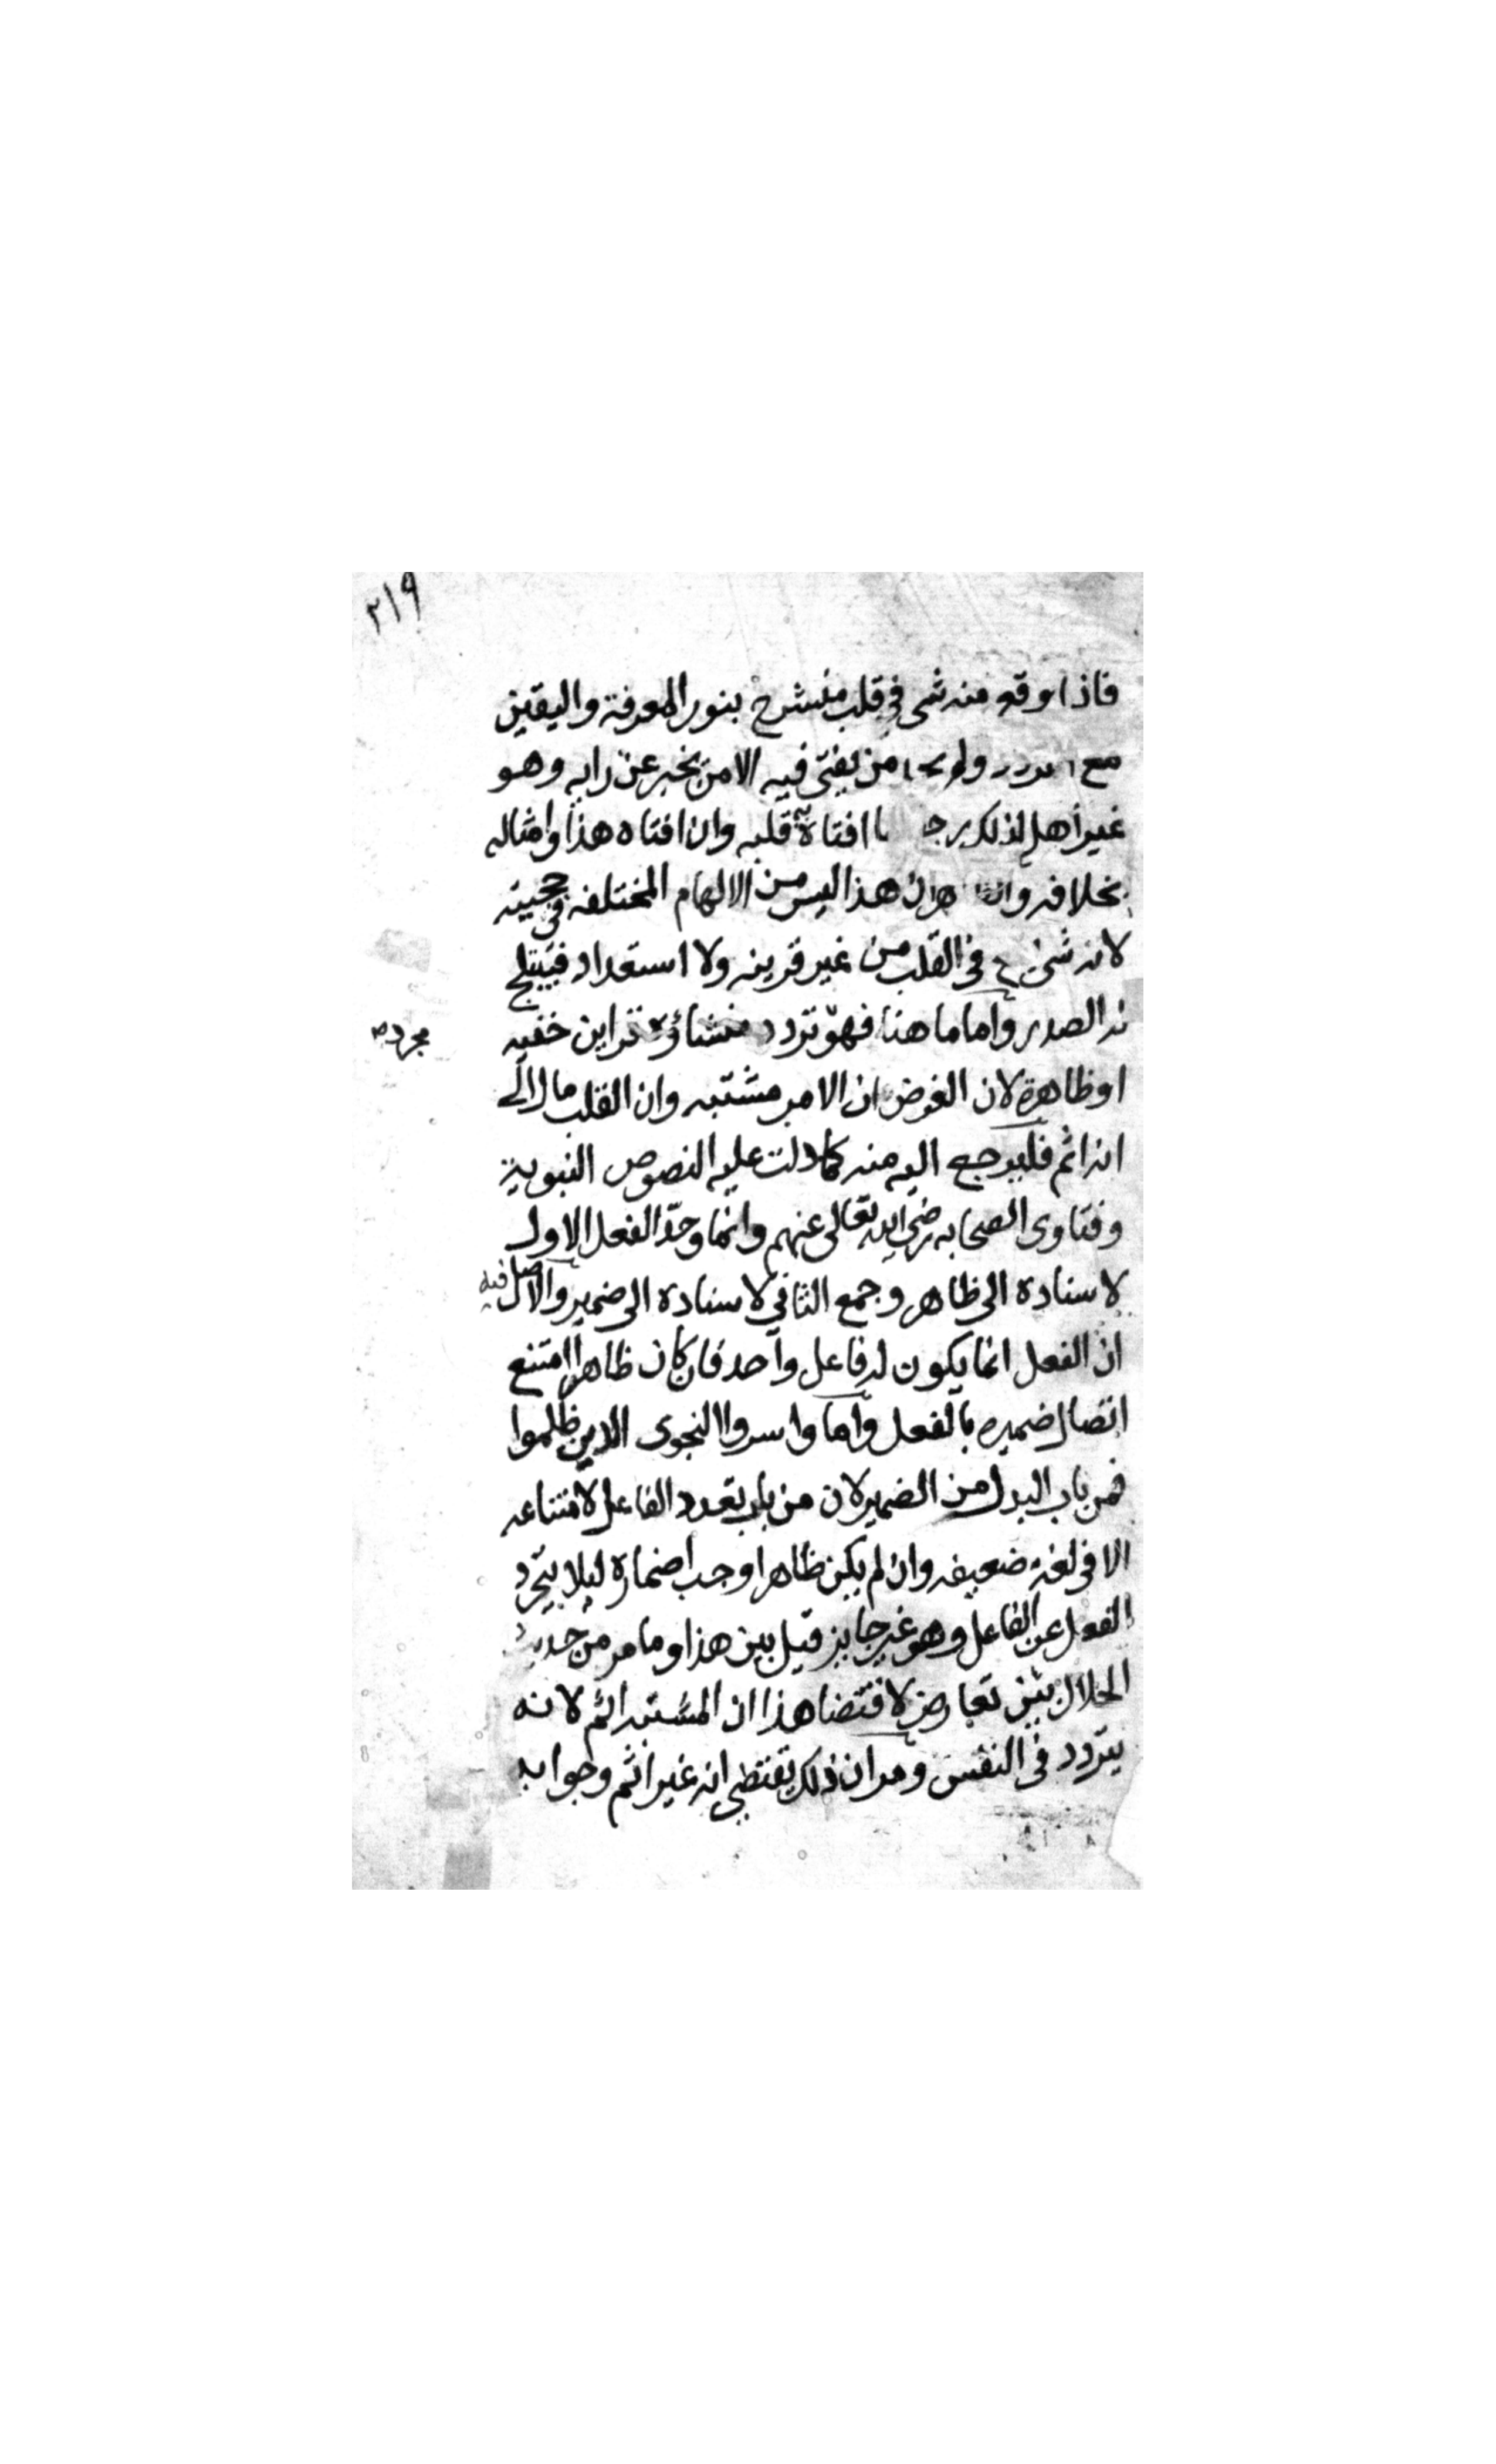 ٢١٩
فاذا وقع منه شى فى قلب منشرح بنور المعرفة واليقين
مع من يفتى فيه الا من يخبر عن رايه وهو
غير أهل لذلك افتاه قلبه وان افتاه هذا وامثاله
بخلافه هذا ليس من الالهام المختلف فى حجيته
لانه شئ فى القلب من غير قرينه ولا استعداد فيثلج
الصدر واما ما هنا فهو تردد منشاؤه قراين خفيه
مجرد
او ظاهرة لان الفرض ان الامر مشتبه وان القلب مال الى
انه اثم فليرجع اليه منه كما دلت عليه النصوص النبوية
وفتاوى الصحابه رضى الله تعالى عنهم وانما وحّد الفعل الاول
لاسناده الى ظاهر وجمع الثانى لاسناده الى ضمير والاصل فيه
ان الفعل انما يكون له فاعل واحد فان كان ظاهرا امتنع
اتصال ضميره بالفعل واما واسروا النجوى الذين ظلموا
فمن باب البدل من الضمير لان من باب تعدد الفاعل لامتناعه
الا فى لغة ضعيفه وان لم يكن ظاهرا وجب اضماره ليلا يتجرد
الفعل عن الفاعل وهو غير جايز قيل بين هذا وما مر من حديث
الحلال بين تعارض لاقتضا هذا ان المشتبه اثم لانه
يتردد فى النفس ومر ان ذلك يقتضي انه غير اثم وجوابه